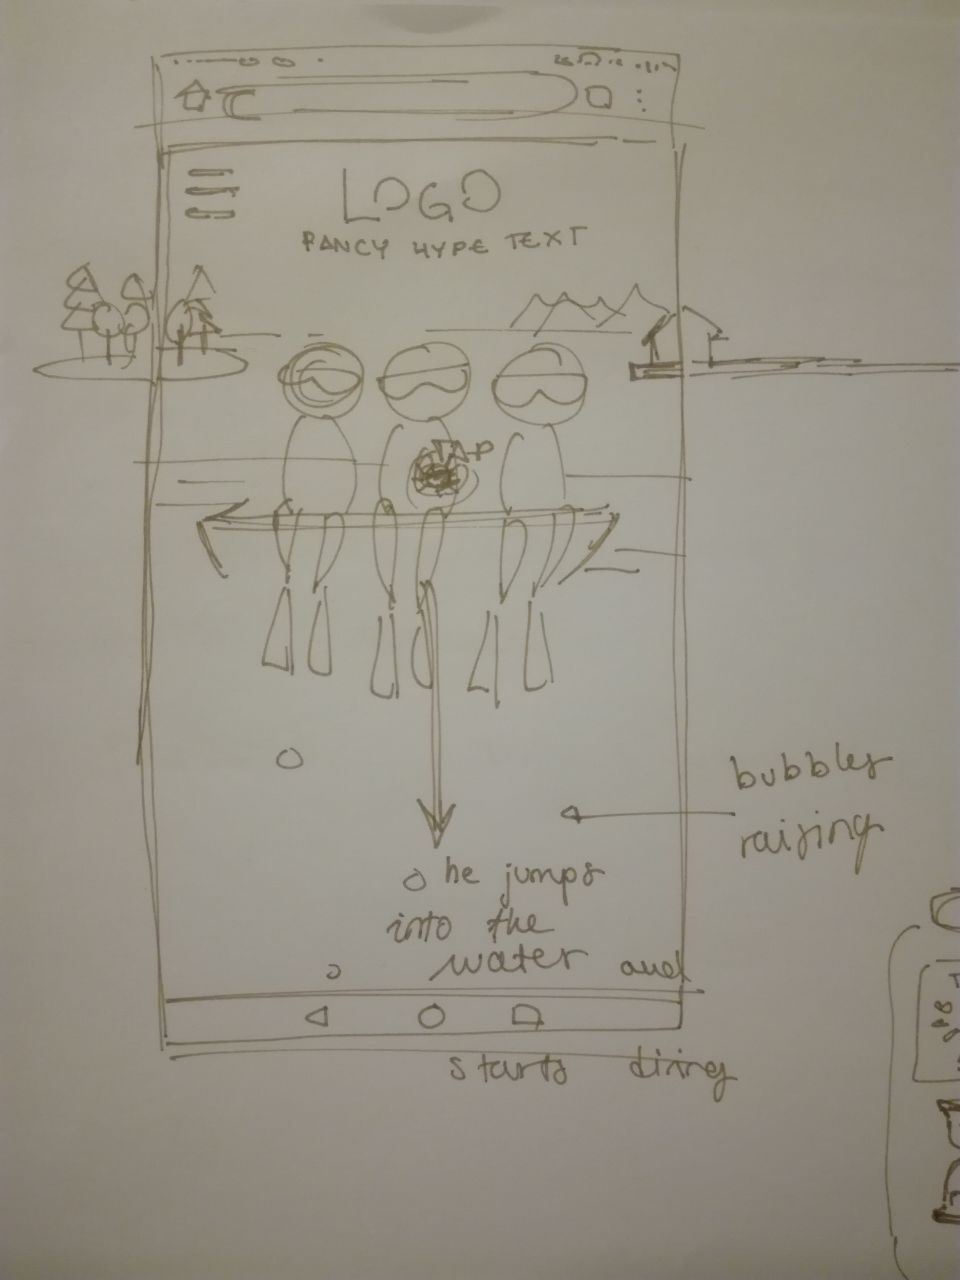 LOGO
FANCY HYPE TEXT
TAP
bubbles
raising
he jumps
into the
water and
starts diving